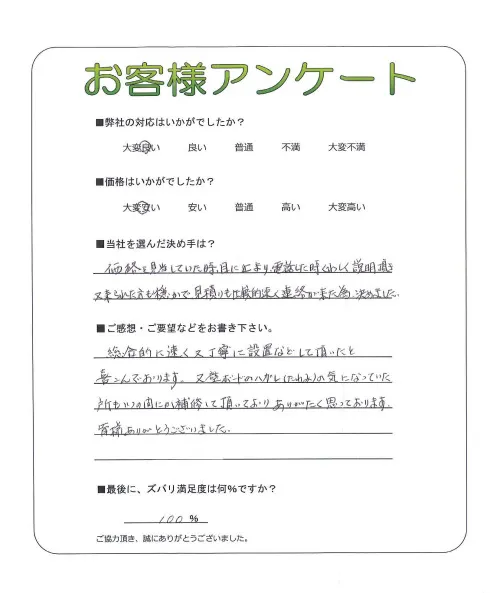 お客様アンケート
■弊社の対応はいかがでしたか？
大変良い 良い 普通 不満 大変不満
■価格はいかがでしたか？
大変安い 安い 普通 高い 大変高い
■当社を選んだ決め手は？
価格を見当していた時、目に止まり電話した時くわしく説明頂き
又来られた方も穏かで見積りも比較的速く連絡が来た為、決めました。
■ご感想・ご要望などをお書き下さい。
総合的に速く又丁寧に設置などして頂いたと
喜こんでおります。又壁ボードのハガレ(たれる)の気になっていた
所もいつの間にか補修して頂いており ありがたく思っております。
皆様ありがとうございました。
■最後に、ズバリ満足度は何%ですか？
100 %
ご協力頂き、誠にありがとうございました。